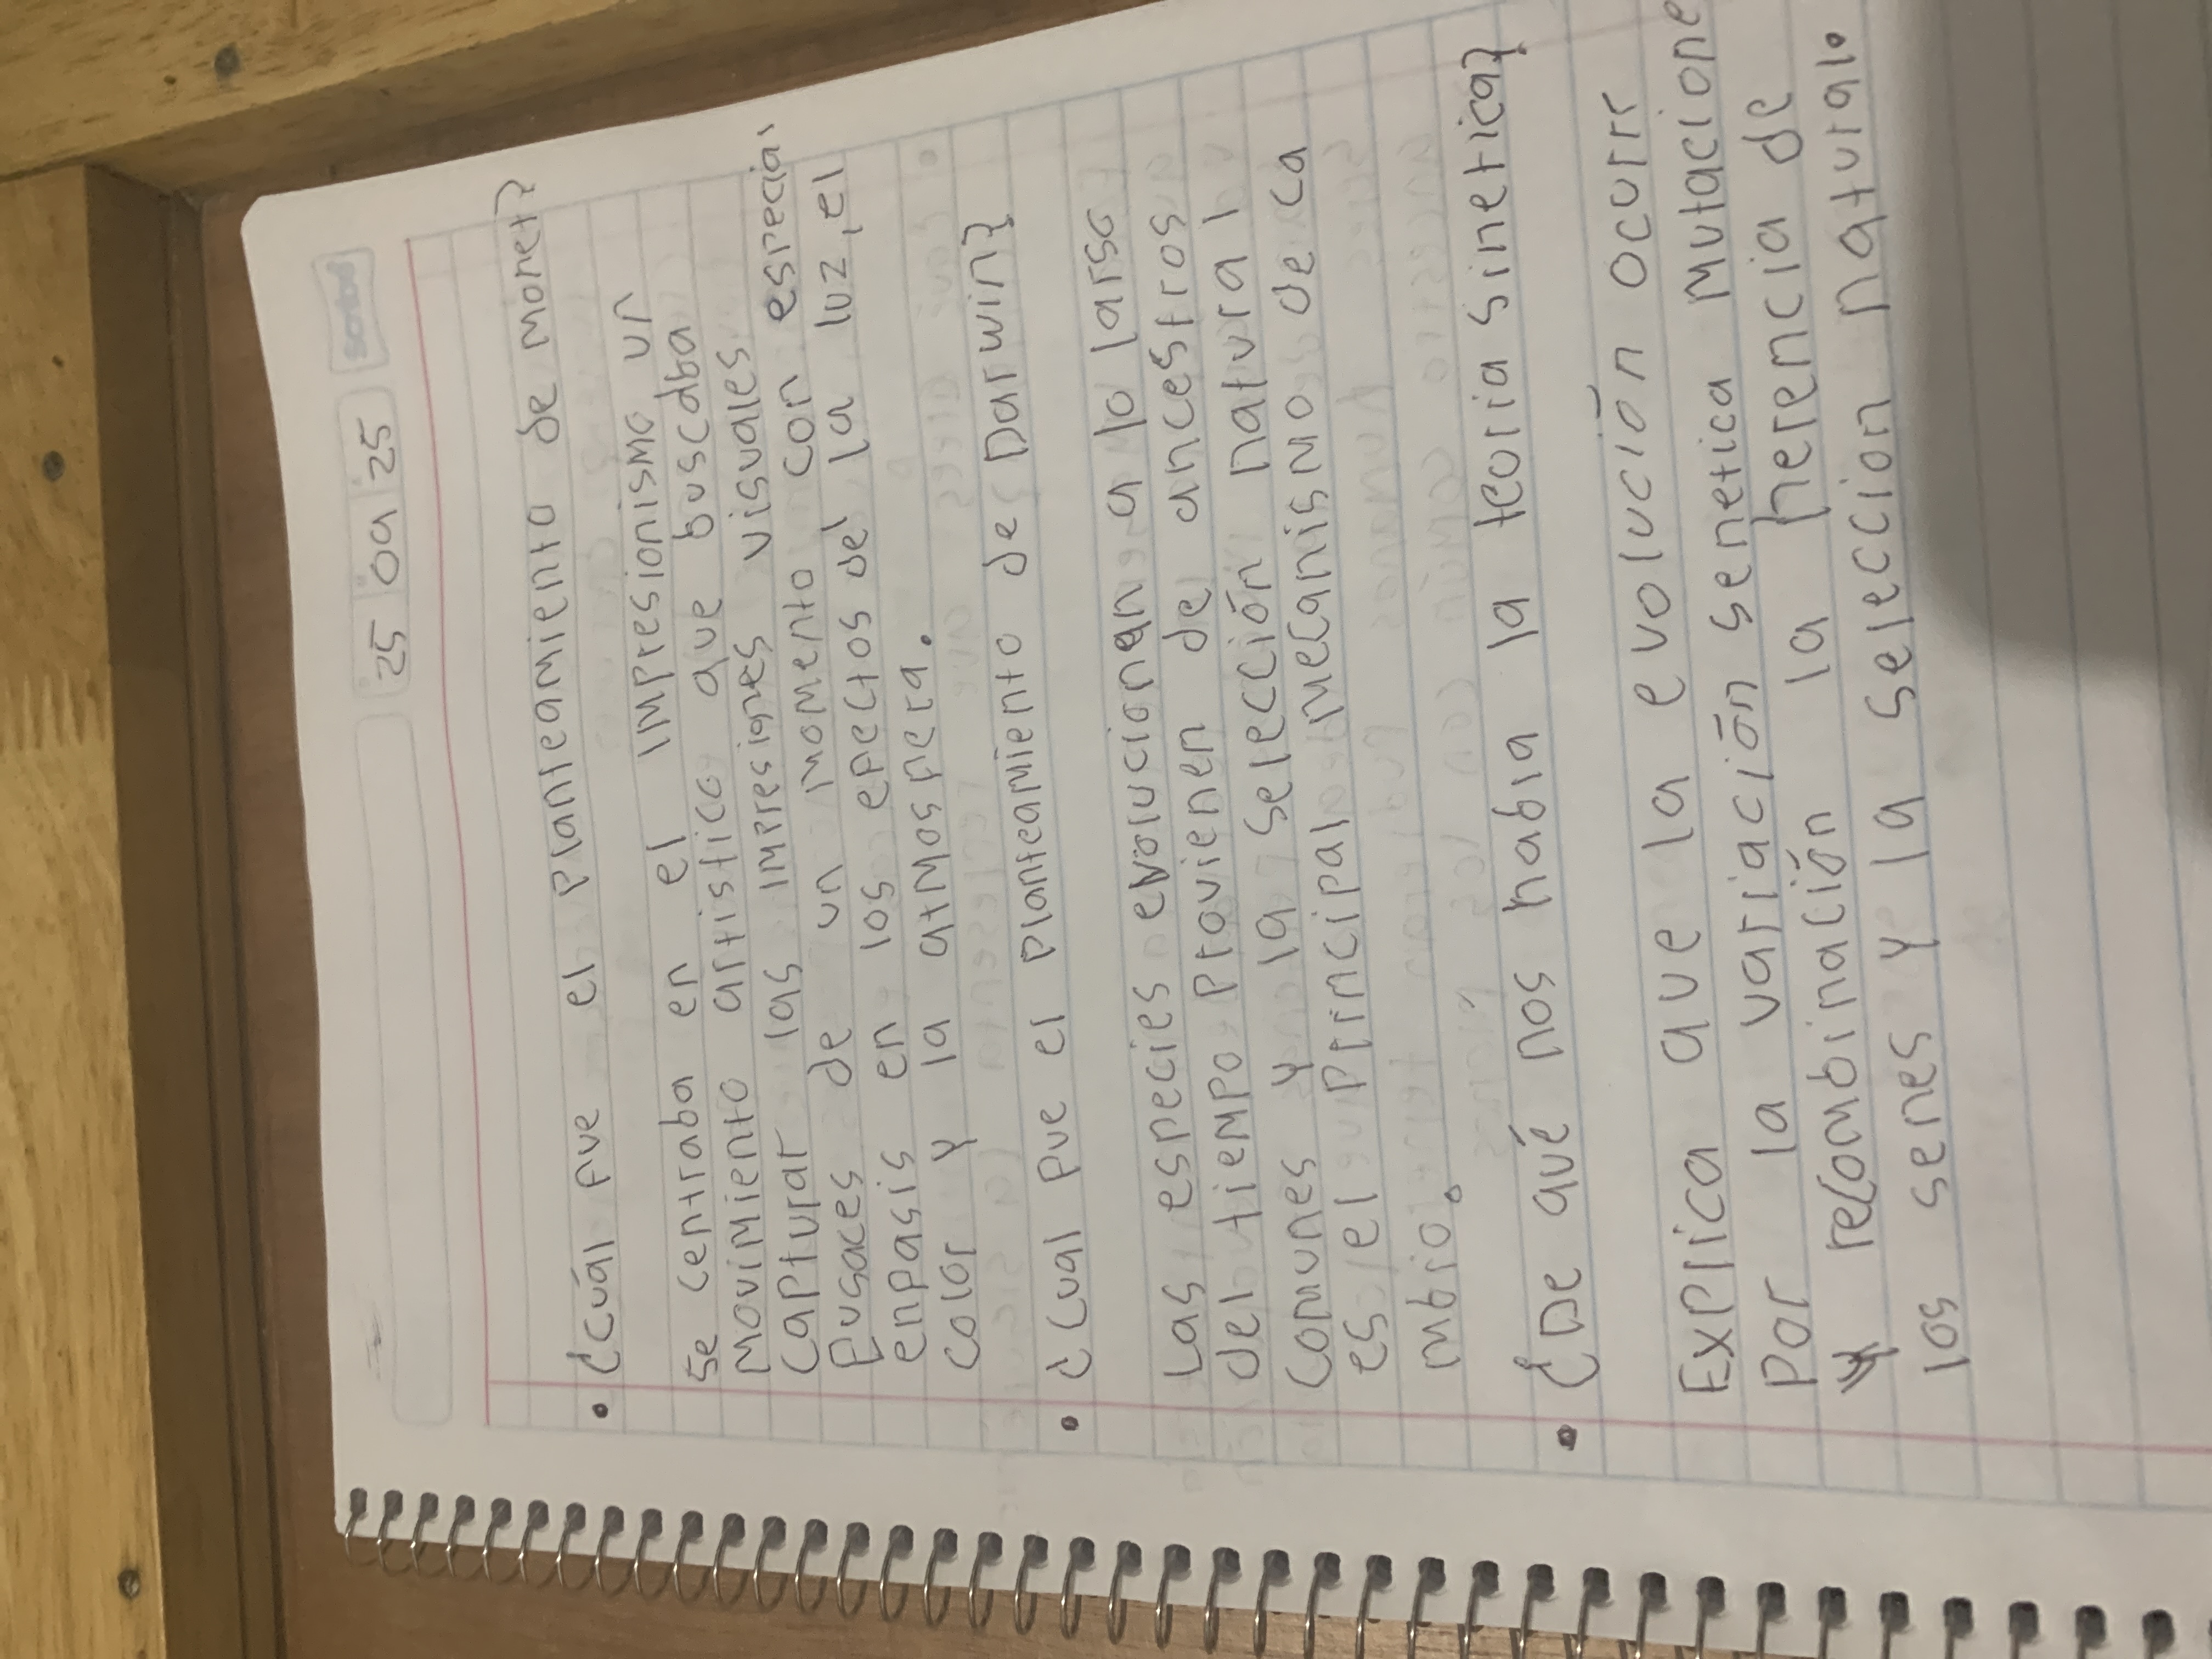 25 09 25
scribe
• ¿Cuál fue el planteamiento de monet?
se centraba en el impresionismo un
movimiento artistico que buscaba
capturar las impresiones visuales
fugaces de un momento con especial
enfasis en los efectos del la luz, el
color y la atmosfera.
• ¿Cual fue el planteamiento de Darwin?
Las especies evolucionan a lo largo
del tiempo provienen de ancestros
comunes y la selección natural
es el principal mecanismo de ca
mbio.
• ¿De qué nos habla la teoria sinetica?
Explica que la evolución ocurr
por la variación genetica mutacione
y recombinación la herencia de
los genes y la seleccion natural.